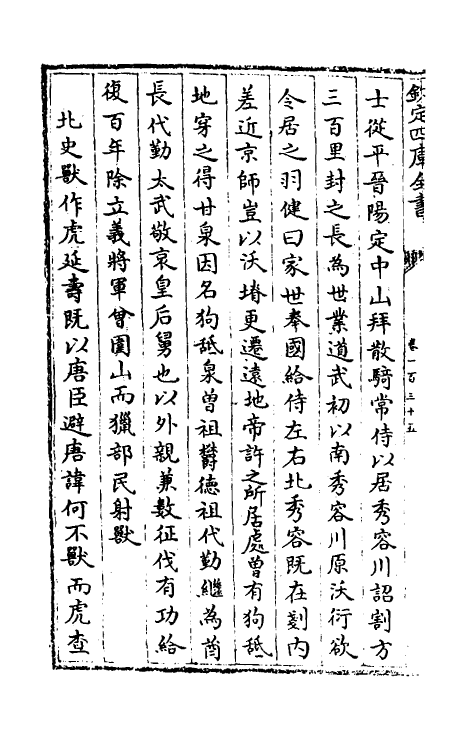 欽定四庫全書
卷一百三十五
士從平晉陽定中山拜散騎常侍以居秀容川詔割方
三百里封之長為世業道武初以南秀容川原沃衍欲
令居之羽健曰家世奉國給侍左右北秀容既在剗内
差近京師豈以沃塉更遷遠地帝許之所居處曽有狗舐
地穿之得甘泉因名狗舐泉曽祖欝徳祖代勤繼為酋
長代勤太武敬哀皇后舅也以外親兼數征伐有功給
復百年除立義將軍曾圍山而獵部民射獸
北史獸作虎延壽既以唐臣避唐諱何不獸而虎查